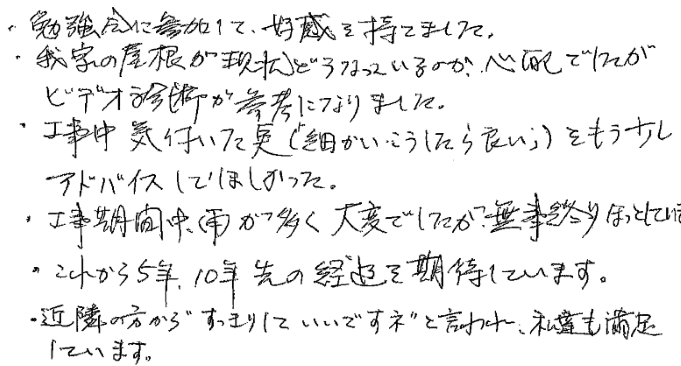 ・勉強会に参加して、好感を持てました。
・我家の屋根が現状どうなっているのか、心配でしたが
ビデオ診断が参考になりました。
・工事中気付いた点(細かい、こうしたら良い、)をもう少し
アドバイスしてほしかった。
・工事期間中、雨が多く大変でしたが、無事終りほっとしてい
・これから5年、10年先の経過を期待しています。
・近隣の方から"すっきりしていいですネ"と言われ、私達も満足
しています。